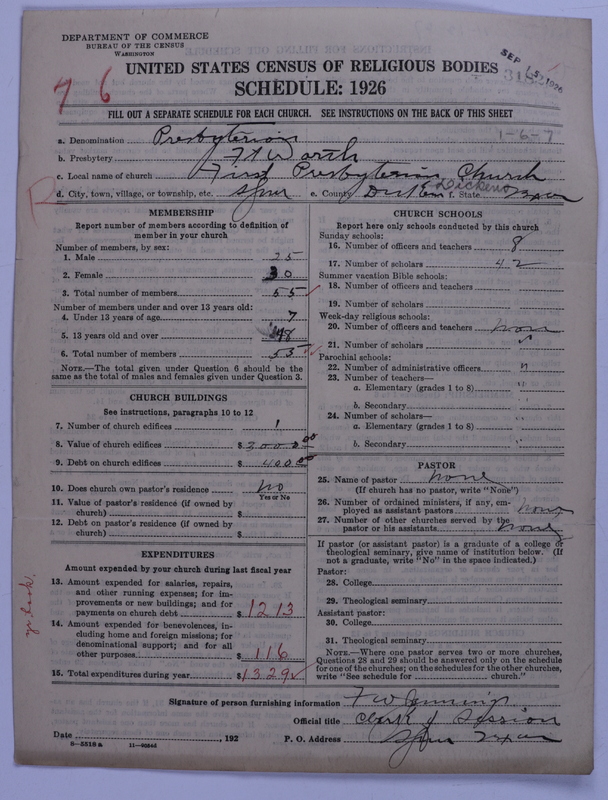 DEPARTMENT OF COMMERCE
BUREAU OF THE CENSUS
WASHINGTON
SEP 1926
UNITED STATES CENSUS OF RELIGIOUS BODIES
SCHEDULE: 1926
76
FILL OUT A SEPARATE SCHEDULE FOR EACH CHURCH. SEE INSTRUCTIONS ON THE BACK OF THIS SHEET
1-6-7
a. Denomination Presbyterian
b. Presbytery Ft Worth
c. Local name of church First Presbyterian Church
R
d. City, town, village, or township, etc. Spur e. County Dickens f. State Texas
MEMBERSHIP
Report number of members according to definition of
member in your church
Number of members, by sex:
1. Male 25
2. Female 30
3. Total number of members 55
Number of members under and over 13 years old:
4. Under 13 years of age 7
5. 13 years old and over 48
6. Total number of members 55
NOTE.—The total given under Question 6 should be
same as the total of males and females given under Question 3.
CHURCH BUILDINGS
See instructions, paragraphs 10 to 12
7. Number of church edifices 1
8. Value of church edifices $ 3000.00
9. Debt on church edifices $ 400.00
10. Does church own pastor's residence No
Yes or No
11. Value of pastor's residence (if owned by
church) $
12. Debt on pastor's residence (if owned by
church) $
EXPENDITURES
Amount expended by your church during last fiscal year
13. Amount expended for salaries, repairs,
and other running expenses; for im-
provements or new buildings; and for
payments on church debt $ 1213
14. Amount expended for benevolences, in-
cluding home and foreign missions; for
denominational support; and for all
other purposes $ 116
15. Total expenditures during year $ 1329
yr. book
CHURCH SCHOOLS
Report here only schools conducted by this church
Sunday schools:
16. Number of officers and teachers 8
17. Number of scholars 42
Summer vacation Bible schools:
18. Number of officers and teachers
19. Number of scholars
Week-day religious schools:
20. Number of officers and teachers None
21. Number of scholars "
Parochial schools:
22. Number of administrative officers "
23. Number of teachers—
a. Elementary (grades 1 to 8) "
b. Secondary "
24. Number of scholars—
a. Elementary (grades 1 to 8) "
b. Secondary "
PASTOR
25. Name of pastor None
(If church has no pastor, write "None")
26. Number of ordained ministers, if any, em-
ployed as assistant pastors None
27. Number of other churches served by the
pastor or his assistants None
If pastor (or assistant pastor) is a graduate of a college or
theological seminary, give name of institution below. (If
not a graduate, write "No" in the space indicated.)
Pastor:
28. College
29. Theological seminary
Assistant pastor:
30. College
31. Theological seminary
NOTE.—Where one pastor serves two or more churches,
Questions 28 and 29 should be answered only on the schedule
for one of the churches; on the schedules for the other churches,
write "See schedule for ........ church."
Signature of person furnishing information F W Jennings
Official title Clerk of Session
Date , 192 P. O. Address Spur Texas
8—5518 a 11—9034d